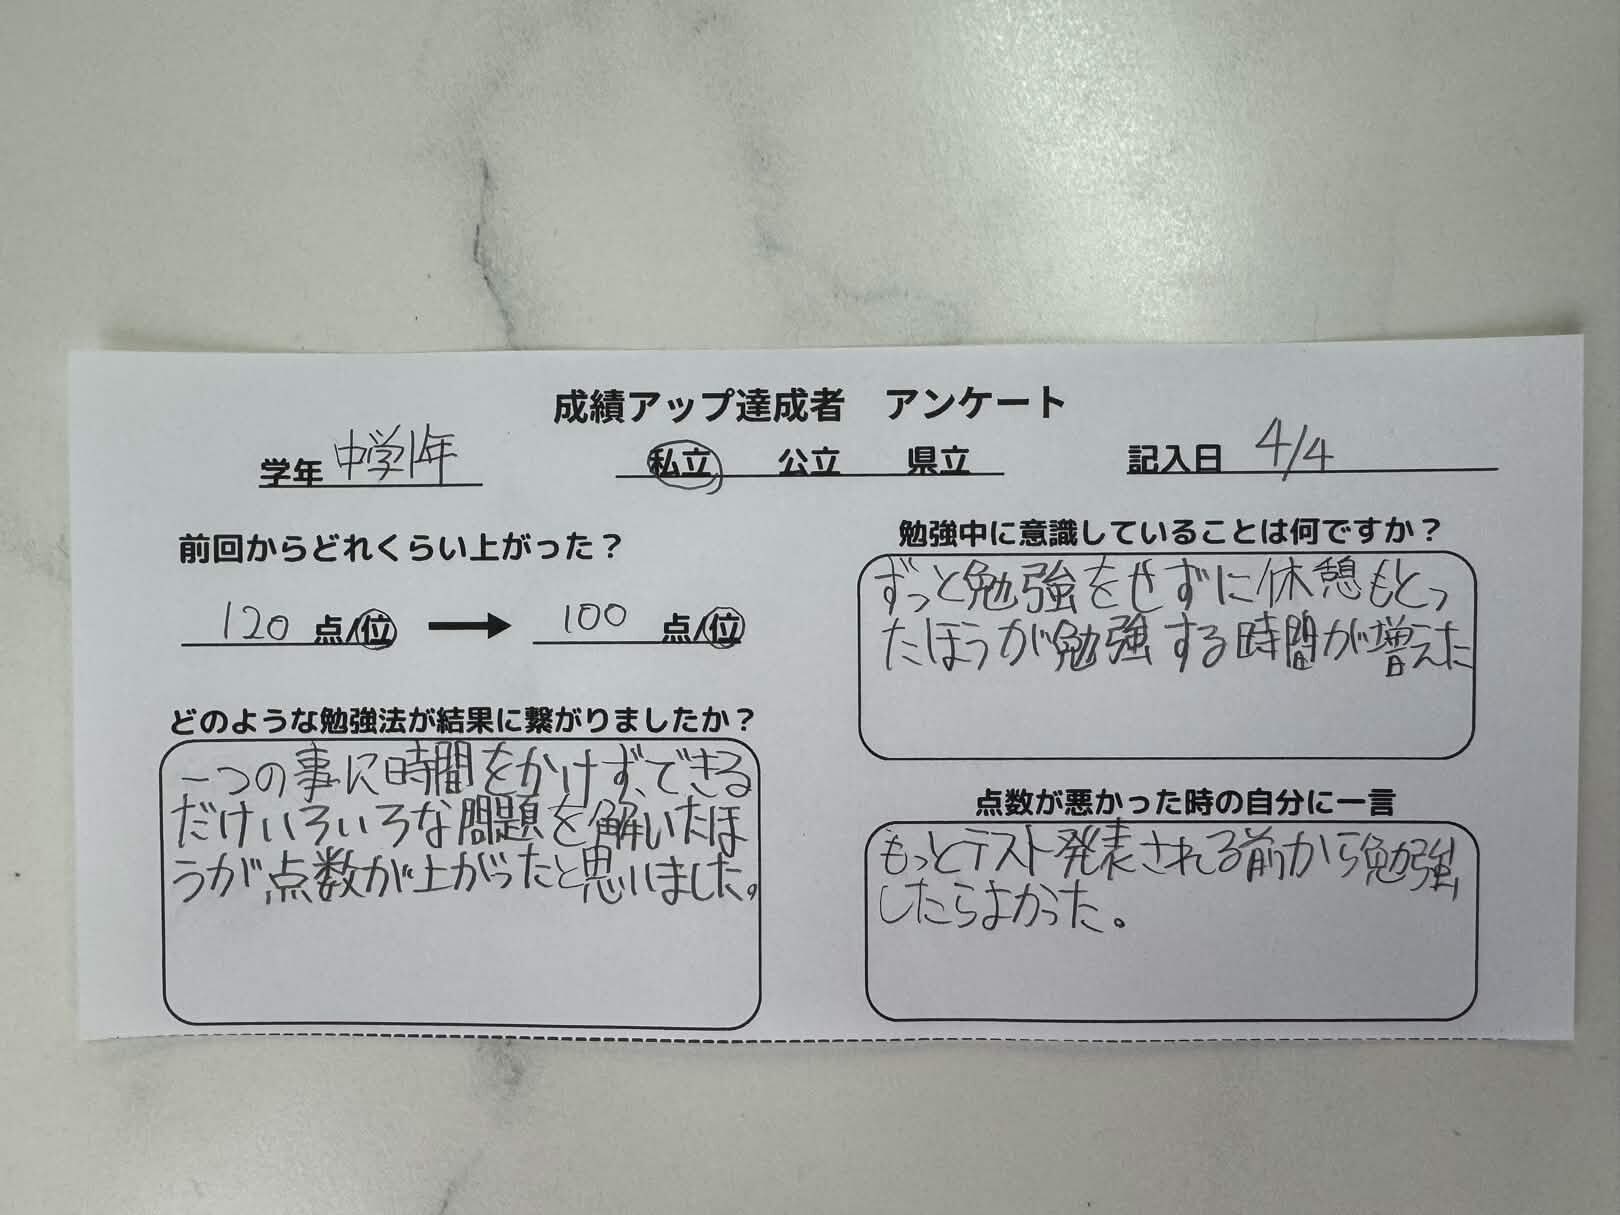 成績アップ達成者　アンケート
学年 中学1年
私立　公立　県立
記入日 4/4
前回からどれくらい上がった？
120 点/位 → 100 点/位
どのような勉強法が結果に繋がりましたか？
一つの事に時間をかけず、できる
だけいろいろな問題を解いたほ
うが点数が上がったと思いました。
勉強中に意識していることは何ですか？
ずっと勉強をせずに休憩もとっ
たほうが勉強する時間が増えた
点数が悪かった時の自分に一言
もっとテスト発表される前から勉強
したらよかった。